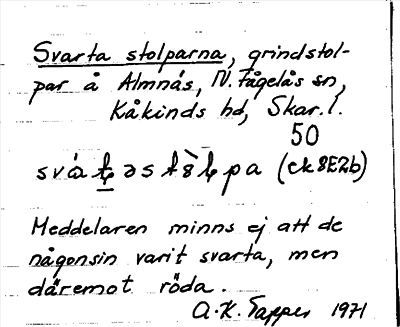 Svarta stolparna, grindstol-
par å Almnäs, N. Fågelås sn,
Kåkinds hd, Skar. l.
50
(ek 8E2b)
Meddelaren minns ej att de
någonsin varit svarta, men
däremot röda.
A.K. Tapper 1971